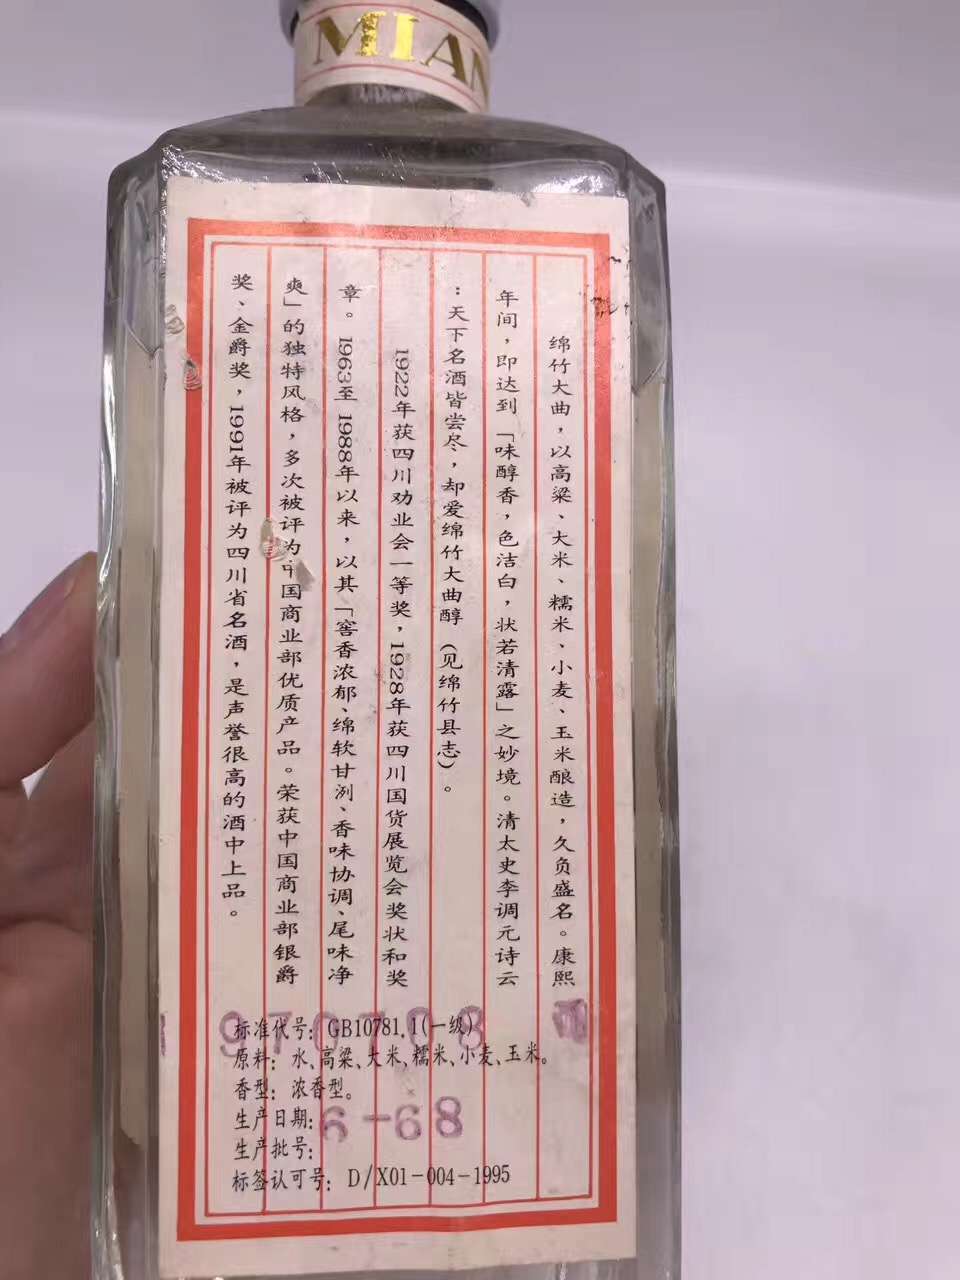 MIAN
绵竹大曲，以高粱、大米、糯米、小麦、玉米酿造，久负盛名。康熙
年间，即达到「味醇香，色洁白，状若清露」之妙境。清太史李调元诗云
：天下名酒皆尝尽，却爱绵竹大曲醇（见绵竹县志）。
1922年获四川劝业会一等奖，1928年获四川国货展览会奖状和奖
章。1963至1988年以来，以其「窖香浓郁、绵软甘洌、香味协调、尾味净
爽」的独特风格，多次被评为中国商业部优质产品。荣获中国商业部银爵
奖、金爵奖，1991年被评为四川省名酒，是声誉很高的酒中上品。
970708
标准代号：GB10781.1(一级)
原料：水、高粱、大米、糯米、小麦、玉米。
香型：浓香型。
生产日期：
6-68
生产批号：
标签认可号：D/X01-004-1995